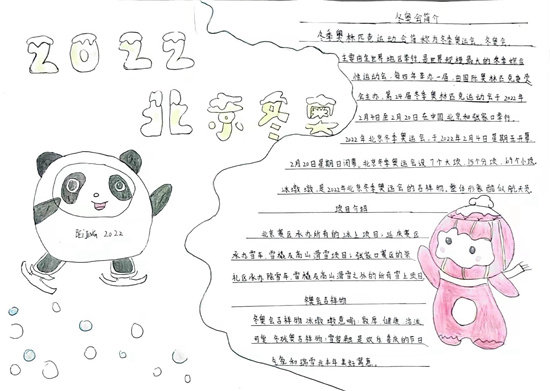 2022
北京冬奥
BEIJING 2022
冬奥会简介
冬季奥林匹克运动会简称为冬季奥运会、冬奥会
主要由全世界地区举行,是世界规模最大的冬季综合
性运动会,每四年举办一届,由国际奥林匹克委员
会主办,第24届冬季奥林匹克运动会于2022年
2月4日至2月20日在中国北京和张家口举行,
2022年北京冬季奥运会,于2022年2月4日星期五开幕
2月20日星期日闭幕,北京冬季奥运会设7个大项,15个分项,69个小项
冰墩墩,是2022年北京冬季奥运会的吉祥物,整体形象酷似航天员
项目介绍
北京赛区承办所有的冰上项目;延庆赛区
承办雪车、雪橇及高山滑雪项目;张家口赛区的崇
礼区承办除雪车、雪橇及高山滑雪之外的所有雪上项目
冬奥会吉祥物
冬奥会吉祥物冰墩墩意喻:敦厚、健康、活泼
可爱,冬残奥吉祥物:雪容融是欢乐喜庆的节日
气氛和瑞雪兆丰年美好寓意